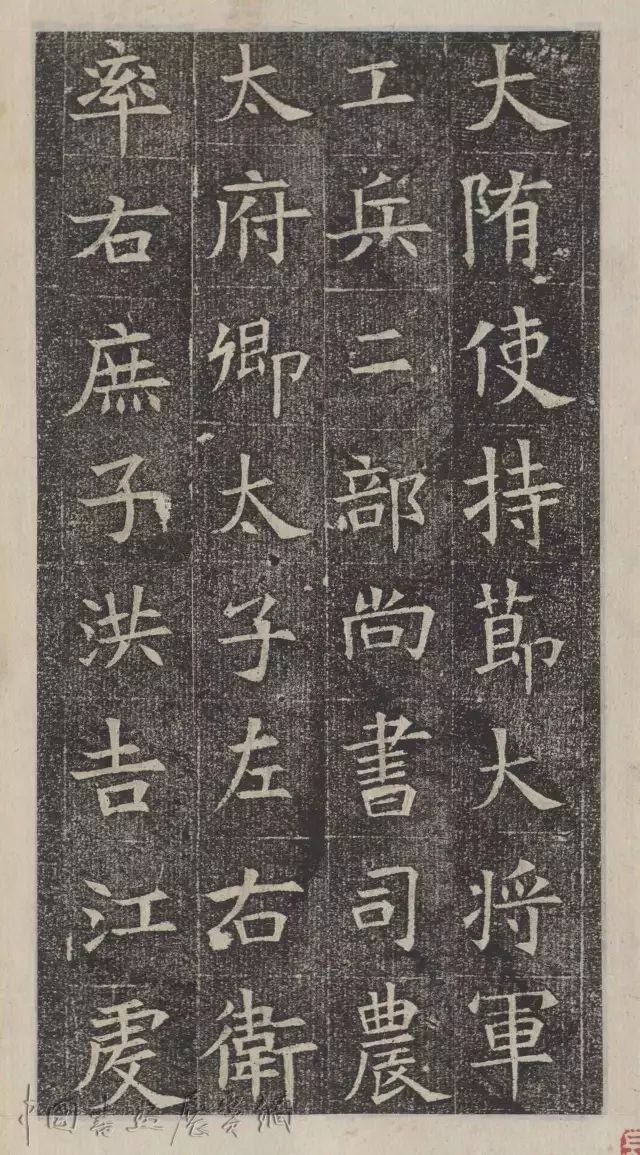 大隋使持節大将軍
工兵二部尚書司農
太府卿太子左右衛
率右庶子洪吉江虔
中国書法展賞網